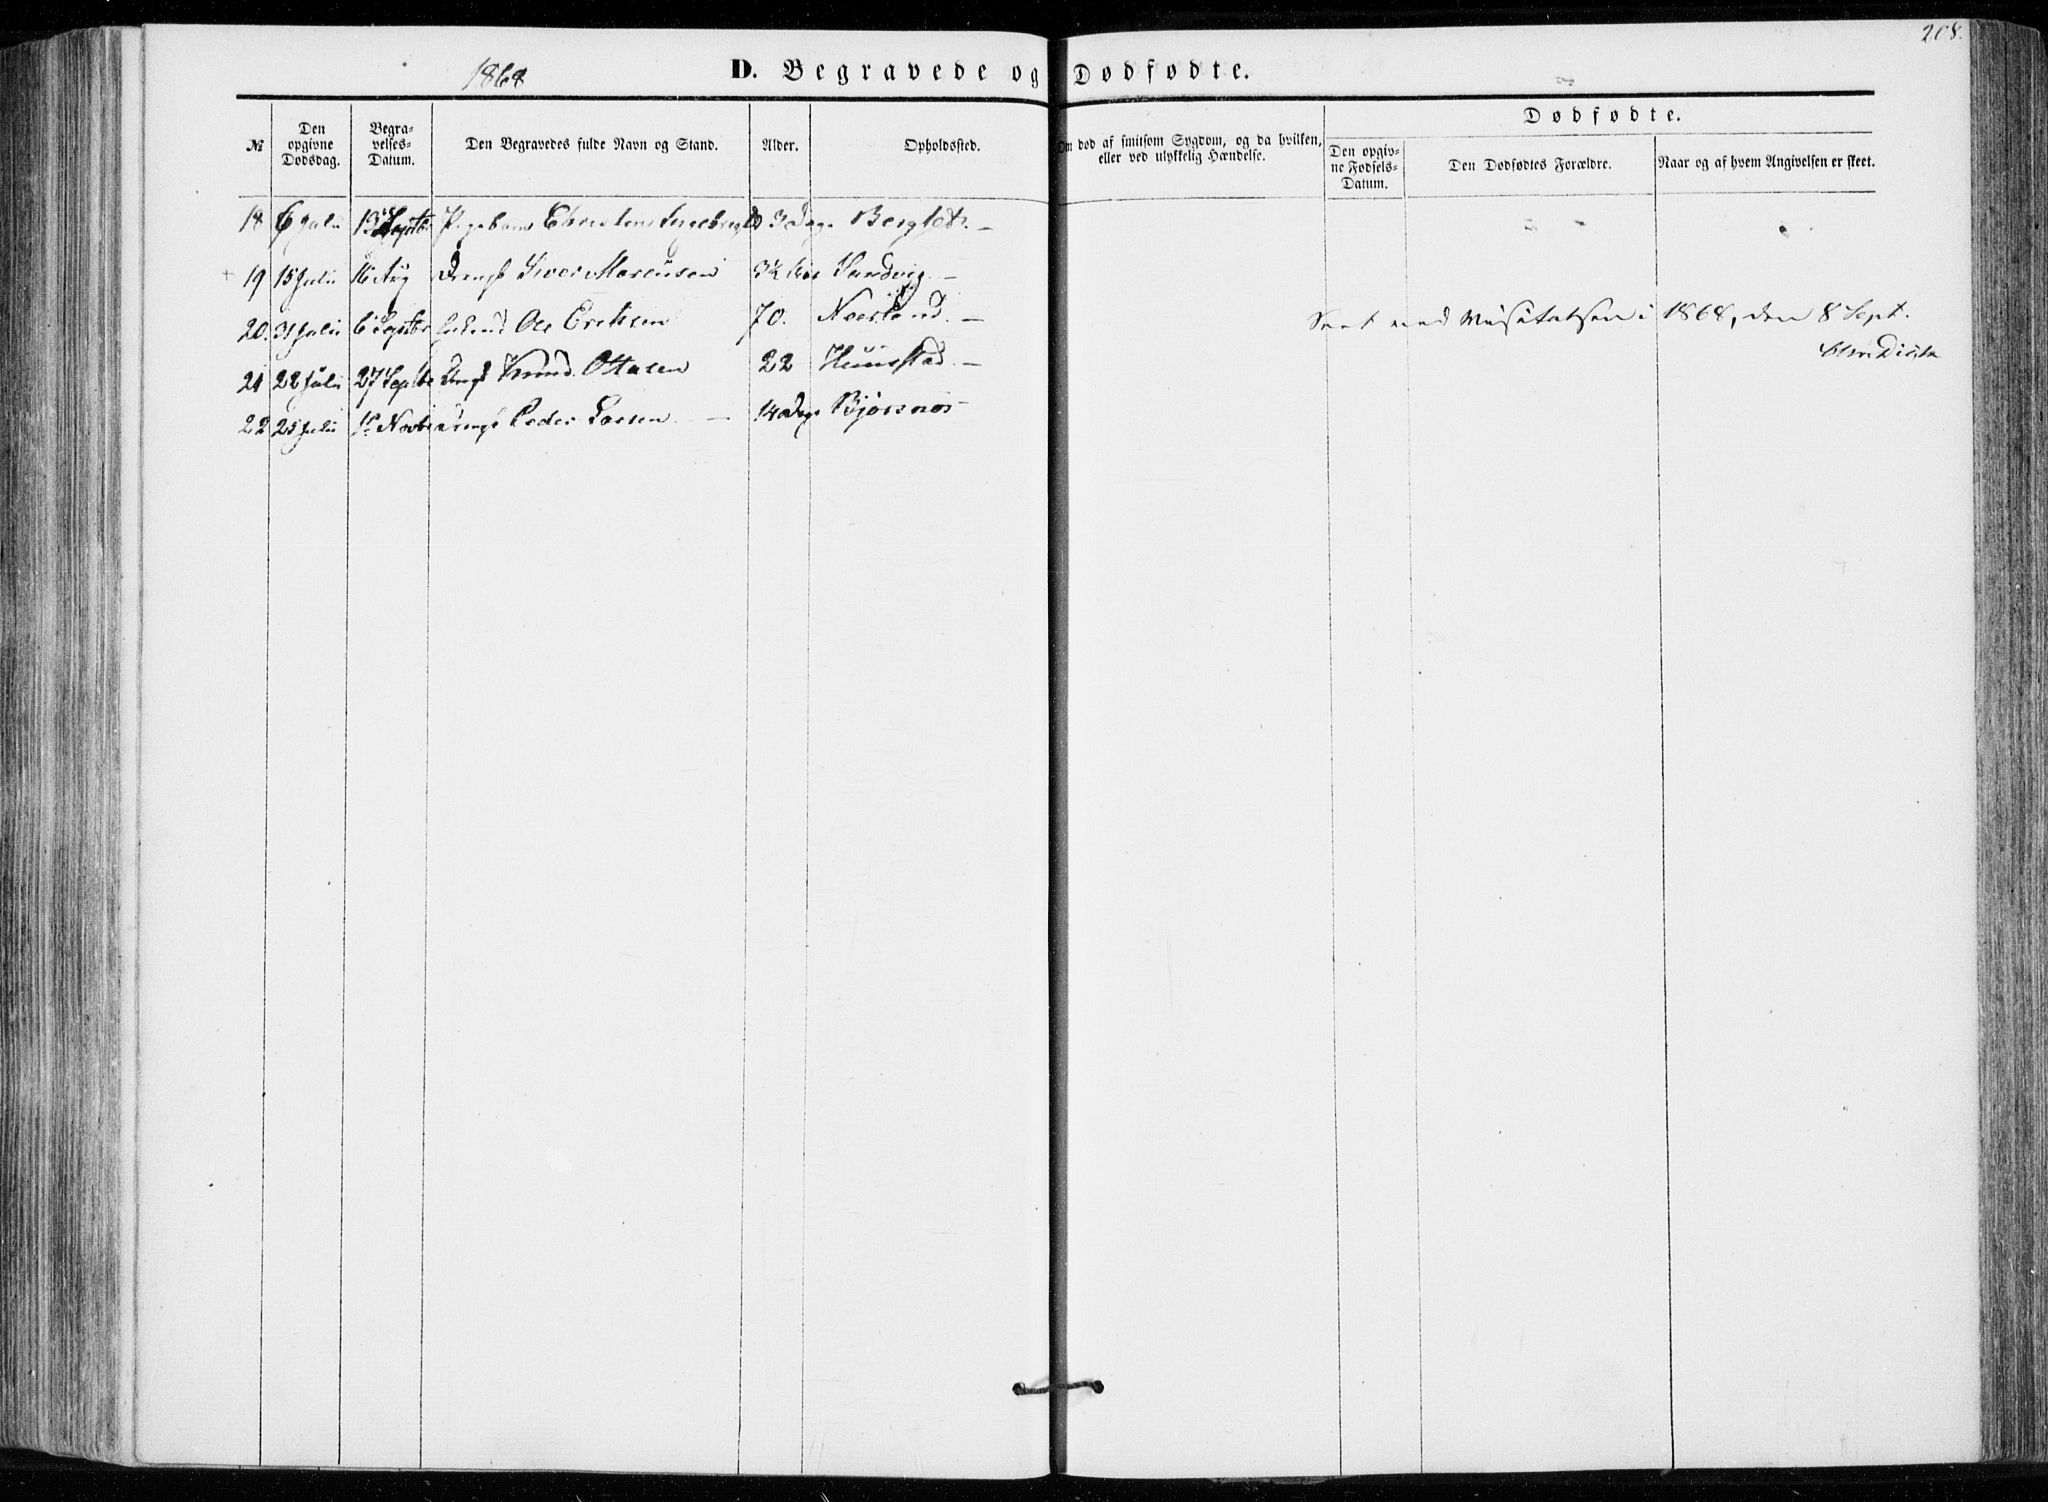 208.
1868
D. Begravede og Dødfødte.
№
Den opgivne Dødsdag.
Begravelses-Datum.
Den Begravedes fulde Navn og Stand.
Alder.
Opholdssted.
Om død af smitsom Sygdom, og da hvilken, eller ved ulykkelig Hændelse.
Dødfødte.
Den opgivne Fødsels-Datum.
Den Dødfødtes Forældre.
Naar og af hvem Angivelsen er skeet.
18 6 Juli 13 Septbr Pigebarn 3 Dage Berglet. —
19 15 Juli 16 Aug Dreng Iver Marcusen 3½ Aar Sandvig —
20. 31 Juli 6 Septbr Ole Eriksen 70. Noerland. —
21 22 Juli 27 Septbr Ungk Knud Ottesen 22 Hunstad —
22 25 Juli 1 Novbr Dreng Peder Larsen — 14 Dage Bjørsnos
Seet ved Visitatsen i 1868, den 8 Sept.